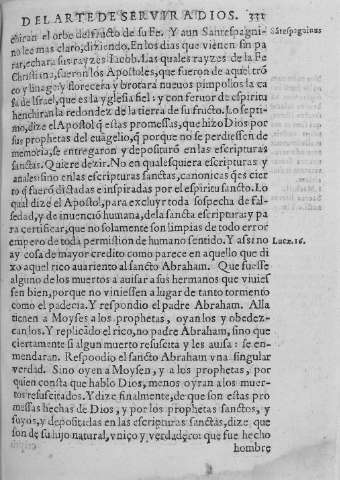 DEL ARTE DE SERVIR A DIOS. 331
chiran el orbe del fructo de su Fe. Y aun Santespagni-
no lee mas claro, diziendo. En los dias que vienen sin pa
rar, echara sus rayzes Iacob. Las quales rayzes de la Fe
Christiana, fueron los Apostoles, que fueron de aquel tro
co y linage: y florecera y brotara nueuos pimpollos la ca
sa de Israel, que es la yglesia fiel: y con feruor de espiritu
henchiran la redondez de la tierra de su fructo. Lo septi-
mo, dize el Apostol q̃ estas promessas, que hizo Dios por
sus prophetas del euãgelio, q̃ porque no se perdiessen de
memoria, se entregaron y depositarõ en las escripturas
sanctas. Quiere dezir. No en qualesquiera escripturas y
anales: sino en las escripturas sanctas, canonicas q̃ es cier
to q̃ fuerõ dictadas e inspiradas por el espiritu sancto. Lo
qual dize el Apostol, para excluyr toda sospecha de fal-
sedad, y de inuenciõ humana, de la sancta escriptura: y pa
ra certificar, que no solamente son limpias de todo error
empero de toda permistion de humano sentido. Y assi no
ay cosa de mayor credito como parece en aquello que di
xo aquel rico auariento al sancto Abraham. Que fuesse
alguno de los muertos a auisar a sus hermanos que viuies
sen bien, porque no viniessen a lugar de tanto tormento
como el padecia. Y respondio el padre Abraham. Alla
tienen a Moyses a los prophetas, oyanlos y obedez-
canlos. Y replicãdo el rico, no padre Abraham, sino que
ciertamente si algun muerto resuscita y les auisa: se en-
mendaran. Respondio el sancto Abraham vna singular
verdad. Sino oyen a Moysen, y a los prophetas, por
quien consta que hablo Dios, menos oyran a los muer-
tos resuscitados. Y dize finalmente, de que son estas pro
messas hechas de Dios, y por los prophetas sanctos, y
suyos, y depositadas en las escripturas sanctas, dize, que
son de su hijo natural, vnico y verdadero: que fue hecho
hombre
Sãtespagninus
Lucæ.16.